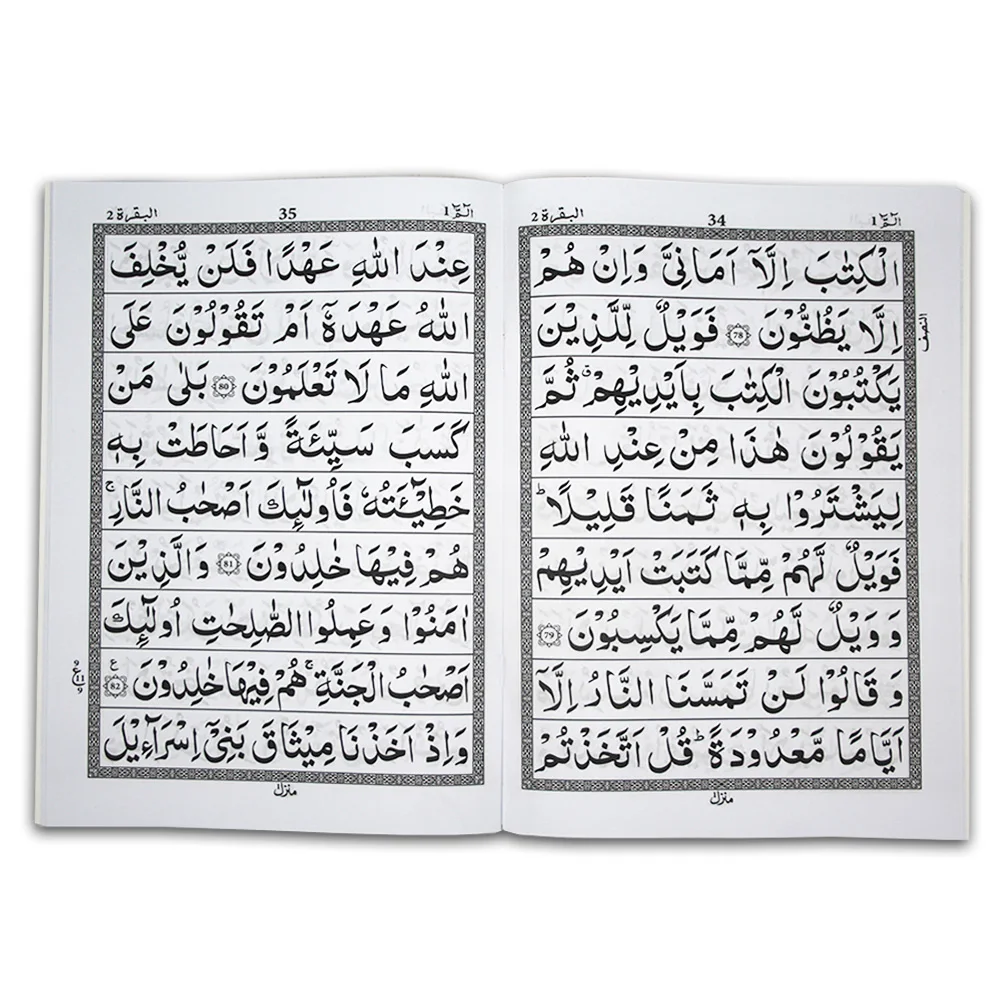 الٓمّٓ 1
34
البقرة 2
الْكِتٰبَ اِلَّاۤ اَمَانِیَّ وَاِنْ هُمْ
اِلَّا یَظُنُّوْنَ 78 فَوَیْلٌ لِّلَّذِیْنَ
یَكْتُبُوْنَ الْكِتٰبَ بِاَیْدِیْهِمْ ۗ ثُمَّ
یَقُوْلُوْنَ هٰذَا مِنْ عِنْدِ اللّٰهِ
لِیَشْتَرُوْا بِهٖ ثَمَنًا قَلِیْلًا ؕ
فَوَیْلٌ لَّهُمْ مِّمَّا كَتَبَتْ اَیْدِیْهِمْ
وَ وَیْلٌ لَّهُمْ مِّمَّا یَكْسِبُوْنَ 79
وَ قَالُوْا لَنْ تَمَسَّنَا النَّارُ اِلَّاۤ
اَیَّامًا مَّعْدُوْدَةً ؕ قُلْ اَتَّخَذْتُمْ
النصف
منزل
الٓمّٓ 1
35
البقرة 2
عِنْدَ اللّٰهِ عَهْدًا فَلَنْ یُّخْلِفَ
اللّٰهُ عَهْدَهٗۤ اَمْ تَقُوْلُوْنَ عَلَی
اللّٰهِ مَا لَا تَعْلَمُوْنَ 80 بَلٰی مَنْ
كَسَبَ سَیِّئَةً وَّ اَحَاطَتْ بِهٖ
خَطِیْٓـَٔتُهٗ فَاُولٰٓئِكَ اَصْحٰبُ النَّارِ ۚ
هُمْ فِیْهَا خٰلِدُوْنَ 81 وَالَّذِیْنَ
اٰمَنُوْا وَ عَمِلُوا الصّٰلِحٰتِ اُولٰٓئِكَ
اَصْحٰبُ الْجَنَّةِ ۚ هُمْ فِیْهَا خٰلِدُوْنَ ع 82
وَ اِذْ اَخَذْنَا مِیْثَاقَ بَنِیْۤ اِسْرَآءِیْلَ
منزل